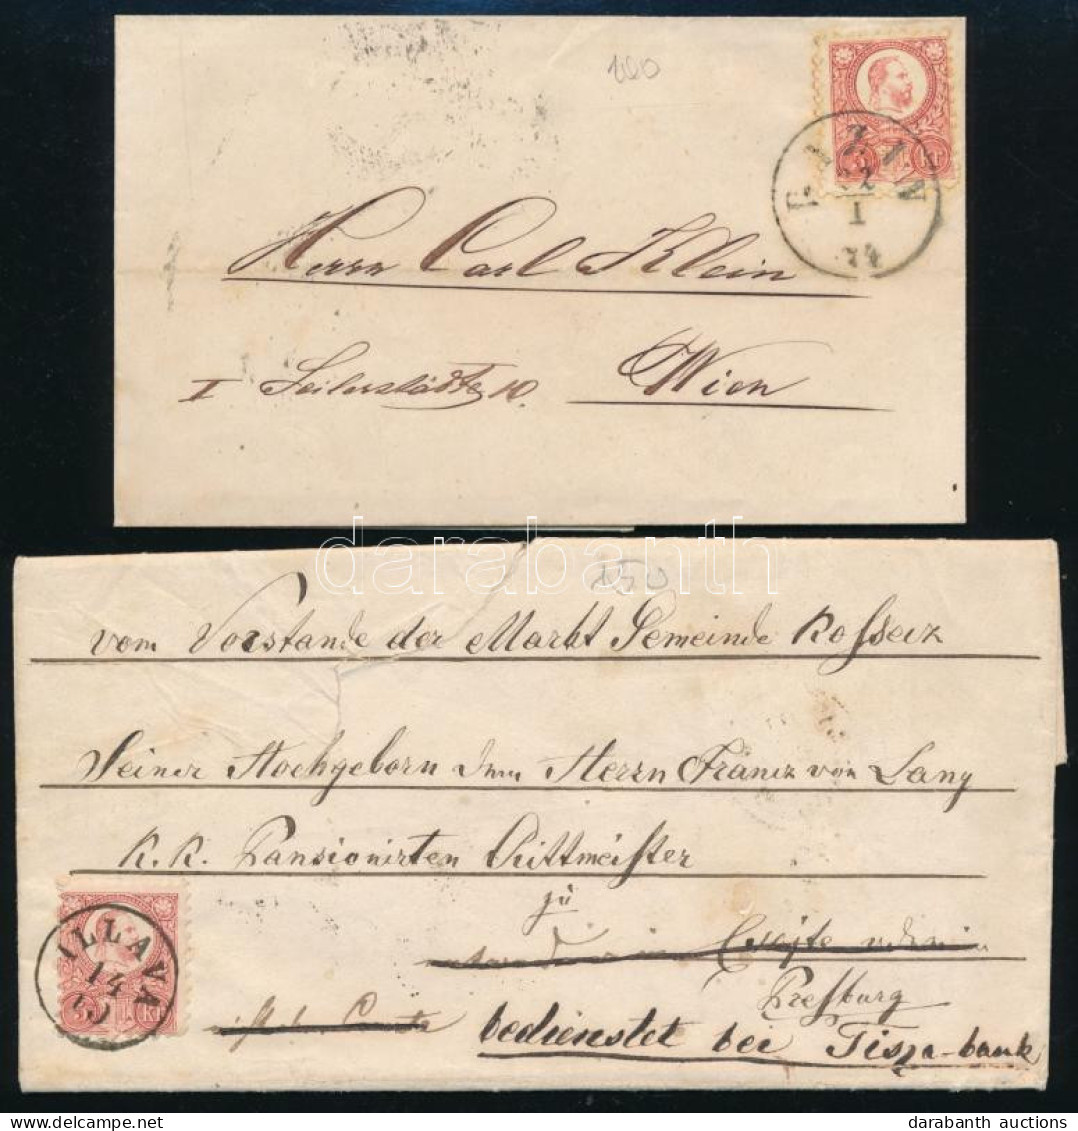 100
BAZIN
22
I
74
Herrn Carl Klein
I Seilerstädte 10.
Wien
darabanth
150
vom Vorstande der Markt Gemeinde Rosseck
Seiner Hochgeborn dem Herrn Franz von Lang
K. K. Pansionirten Rittmeister
zu
Pressburg
bedienstet bei Tisza-bank
ILLAVA
14
darabanth auctions